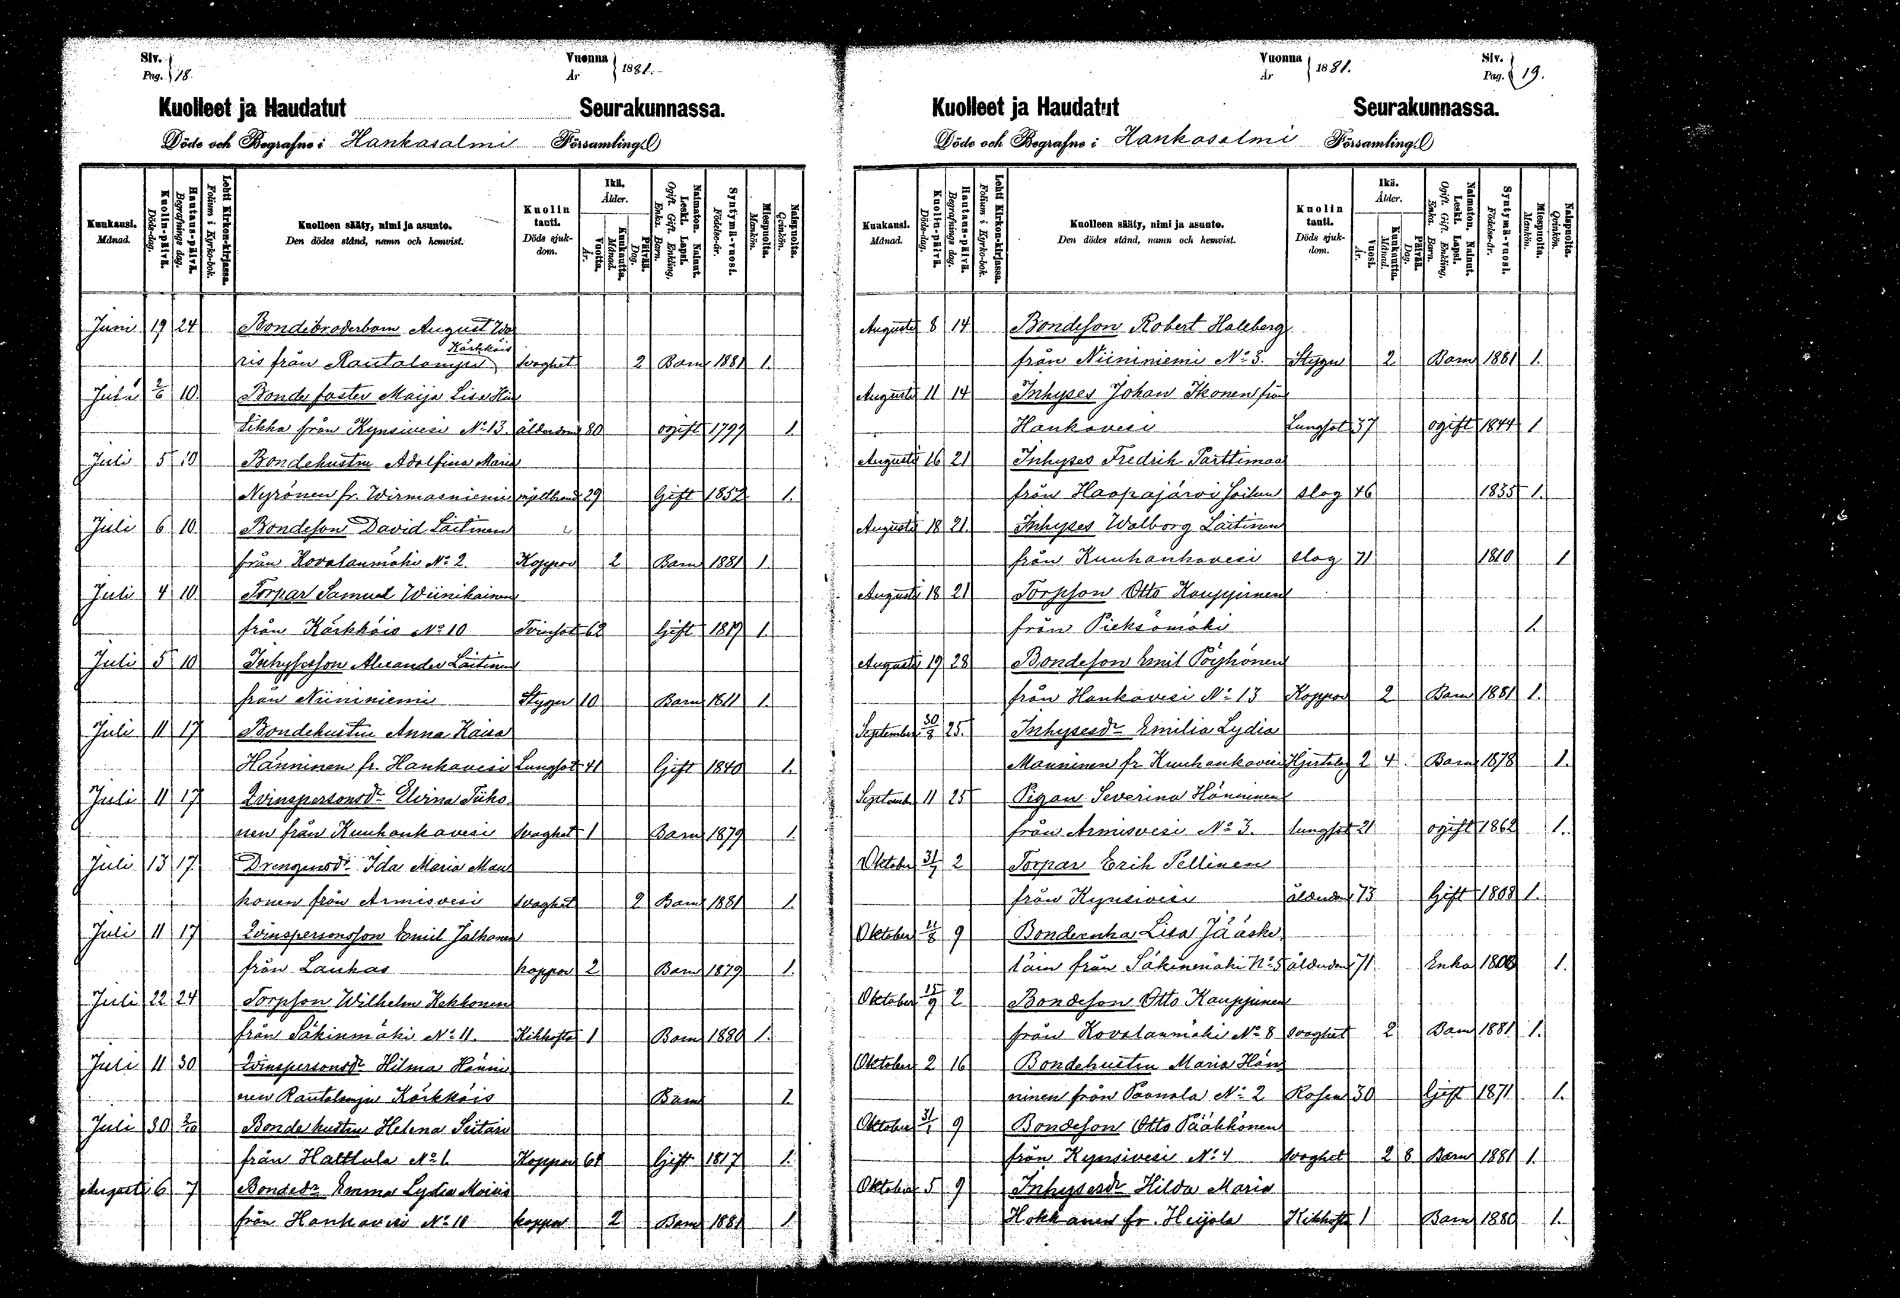 Siv.
Pag. 18.
Vuonna
År 1881.
Kuolleet ja Haudatut Seurakunnassa.
Döde och Begrafne i Hankasalmi Församling
Kuukausi.
Månad.
Kuolin-päivä.
Döds-dag.
Hautaus-päivä.
Begrafnings dag.
Lehti Kirkon-kirjassa.
Folium i Kyrko-bok.
Kuolleen sääty, nimi ja asunto.
Den dödes stånd, namn och hemvist.
Kuolin tauti.
Döds sjukdom.
Ikä.
Ålder.
Vuotta.
År.
Kuukautta.
Månad.
Päivää.
Dag.
Naimaton. Nainut. Leski. Lapsi.
Ogift. Gift. Enkling. Enka. Barn.
Syntymä-vuosi.
Födelse-år.
Miespuolta.
Mankön.
Naispuolta.
Qvinkön.
Juni 19 24 Bondebroderbarn August
Kärkkäis
ris från Rautalampi svaghet 2 Barn 1881 1.
2/6 10. Bonde faster Maija Lisa Hin
tikka från Kynsivesi No 13. ålderdom 80 ogift 1799 1.
Juli 5 10 Bondehustru Adolfina Maria
Nyrönen fr. Wirmasniemi mjeltbrand 29 Gift 1852 1.
Juli 6 10 Bondeson David Laitinen
från Kovalanmäki No 2. Koppor 2 Barn 1881 1
Juli 4 10 Torpar Samuel Wiinikainen
från Kärkkäis No 10 Tvinsot 62 Gift 1819 1.
Juli 5 10 Inhysesson Alexander Laitinen
från Niininiemi Stygn 10 Barn 1811 1.
Juli 11 17 Bondehustru Anna Kaisa
Hänninen fr. Hankavesi Lungsot 41 Gift 1840 1.
Juli 11 17 Qvinspersonsdr Elvina Tiiho
nen från Kuuhankavesi svaghet 1 Barn 1879 1.
Juli 13 17. Drengensdr Ida Maria Man
honen från Armisvesi svaghet 2 Barn 1881 1.
Juli 11 17 Qvinspersonsson Emil Jalkanen
från Laukas koppor 2 Barn 1879 1.
Juli 22 24 Torpson Wilhelm Kekkonen
från Säkinmäki No 11. Kikhosta 1 Barn 1880 1.
Juli 11 30 Qvinspersonsdr Hilma Hänni
nen Rautalampi Kärkkäis Barn 1.
Juli 30 Bonde hustru Helena Siitari
från Halttula No 1. Koppor 64 Gift 1817 1.
Augusti 6 7 Bondedr Emma Lydia Moisio
från Hankavesi No 10 koppor 2 Barn 1881 1.
Vuonna
År 1881.
Siv.
Pag. 19.
Kuolleet ja Haudatut Seurakunnassa.
Döde och Begrafne i Hankasalmi Församling
Kuukausi.
Månad.
Kuolin-päivä.
Döds-dag.
Hautaus-päivä.
Begrafnings dag.
Lehti Kirkon-kirjassa.
Folium i Kyrko-bok.
Kuolleen sääty, nimi ja asunto.
Den dödes stånd, namn och hemvist.
Kuolin tauti.
Döds sjukdom.
Ikä.
Ålder.
Vuosi.
År.
Kuukautta.
Månad.
Päivää.
Dag.
Naimaton. Nainut. Leski. Lapsi.
Ogift. Gift. Enkling. Enka. Barn.
Syntymä-vuosi.
Födelse-år.
Miespuolta.
Mankön.
Naispuolta.
Qvinkön.
Augusti 8 14 Bondeson Robert Halleberg
från Niininiemi No 3. Stygn 2 Barn 1881 1.
Augusti 11 14 Inhyses Johan Ikonen från
Hankavesi Lungsot 37 ogift 1844 1
Augusti 16 21 Inhyses Fredrik Parttimaa
från Haapajärvi slag 46 1835 1.
Augusti 18 21. Inhyses Walborg Laitinen
från Kuuhankavesi slag 71 1810 1
Augusti 18 21 Torpson Otto Kauppinen
från Pieksämäki 1.
Augusti 19 28 Bondeson Emil Pöyhönen
från Hankavesi No 13 Koppor 2 Barn 1881 1.
September 30/8 25. Inhysesdr Emilia Lydia
Manninen fr Kuuhankavesi Hjertslag 2 4 Barn 1878 1.
September 11 25 Pigan Severina Hänninen
från Armisvesi No 3. Lungsot 21 ogift 1862 1.
Oktober 31/7 2 Torpar Erik Pellinen
från Kynsivesi ålderdom 73 Gift 1808 1.
Oktober 21/8 9 Bondeenka Lisa Jääske
läin från Säkinmäki No 5 ålderdom 71 Enka 1.
Oktober 15/9 2 Bondeson Otto Kauppinen
från Kovalanmäki No 8 svaghet 2 Barn 1881 1.
Oktober 2 16 Bondehustru Maria Hän
ninen från Paanala No 2 Rosen 30 Gift 1871 1.
Oktober 31/1 9 Bondeson Otto Pääkkönen
från Kynsivesi No 4 svaghet 2 8 Barn 1881 1.
Oktober 5 9 Inhysesdr Hilda Maria
Hokkanen fr. Heijola Kikhosta 1 Barn 1880 1.